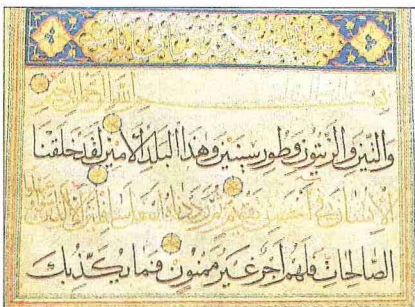 بسم الله الرحمن الرحيم
والتين والزيتون وطور سينين وهذا البلد الأمين لقد خلقنا
الإنسان في أحسن تقويم ثم رددناه أسفل سافلين إلا الذين
الصالحات فلهم أجر غير ممنون فما يكذبك